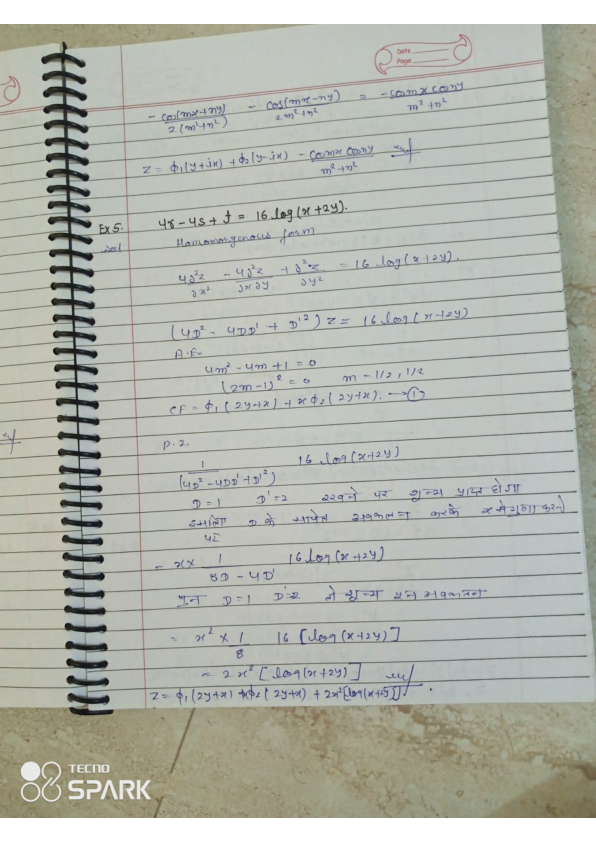 Date
Page
- cos(mx+ny)/2(m²+n²) - cos(mx-ny)/2m²+n² = -cosmx cosny/m²+n²
z = φ₁(y+ix) + φ₂(y-ix) - cosmx cosny/m²+n²
Ex 5. 4r - 4s + t = 16 log(x+2y).
Sol Homomorgenous form
4∂²z/∂x² - 4∂²z/∂x∂y + ∂²z/∂y² = 16 log(x+2y).
(4D² - 4DD' + D'²) z = 16 log(x+2y)
A.E.
4m² - 4m + 1 = 0
(2m-1)² = 0 m = 1/2, 1/2
CF = φ₁(2y+x) + xφ₂(2y+x). → ①
P.I.
1/(4D² - 4DD' + D'²) 16 log(x+2y)
D=1 D'=2 रखने पर शून्य प्राप्त होगा
इसलिए D के सापेक्ष अवकलन करके x से गुणा करने
= x × 1/8D - 4D' 16 log(x+2y)
पुनः D=1 D'=2 तो शून्य पुनः अवकलन
= x² × 1/8 16 [log(x+2y)]
= 2x² [log(x+2y)]
z = φ₁(2y+x) + xφ₂(2y+x) + 2x²[log(x+2y)].
TECNO
SPARK